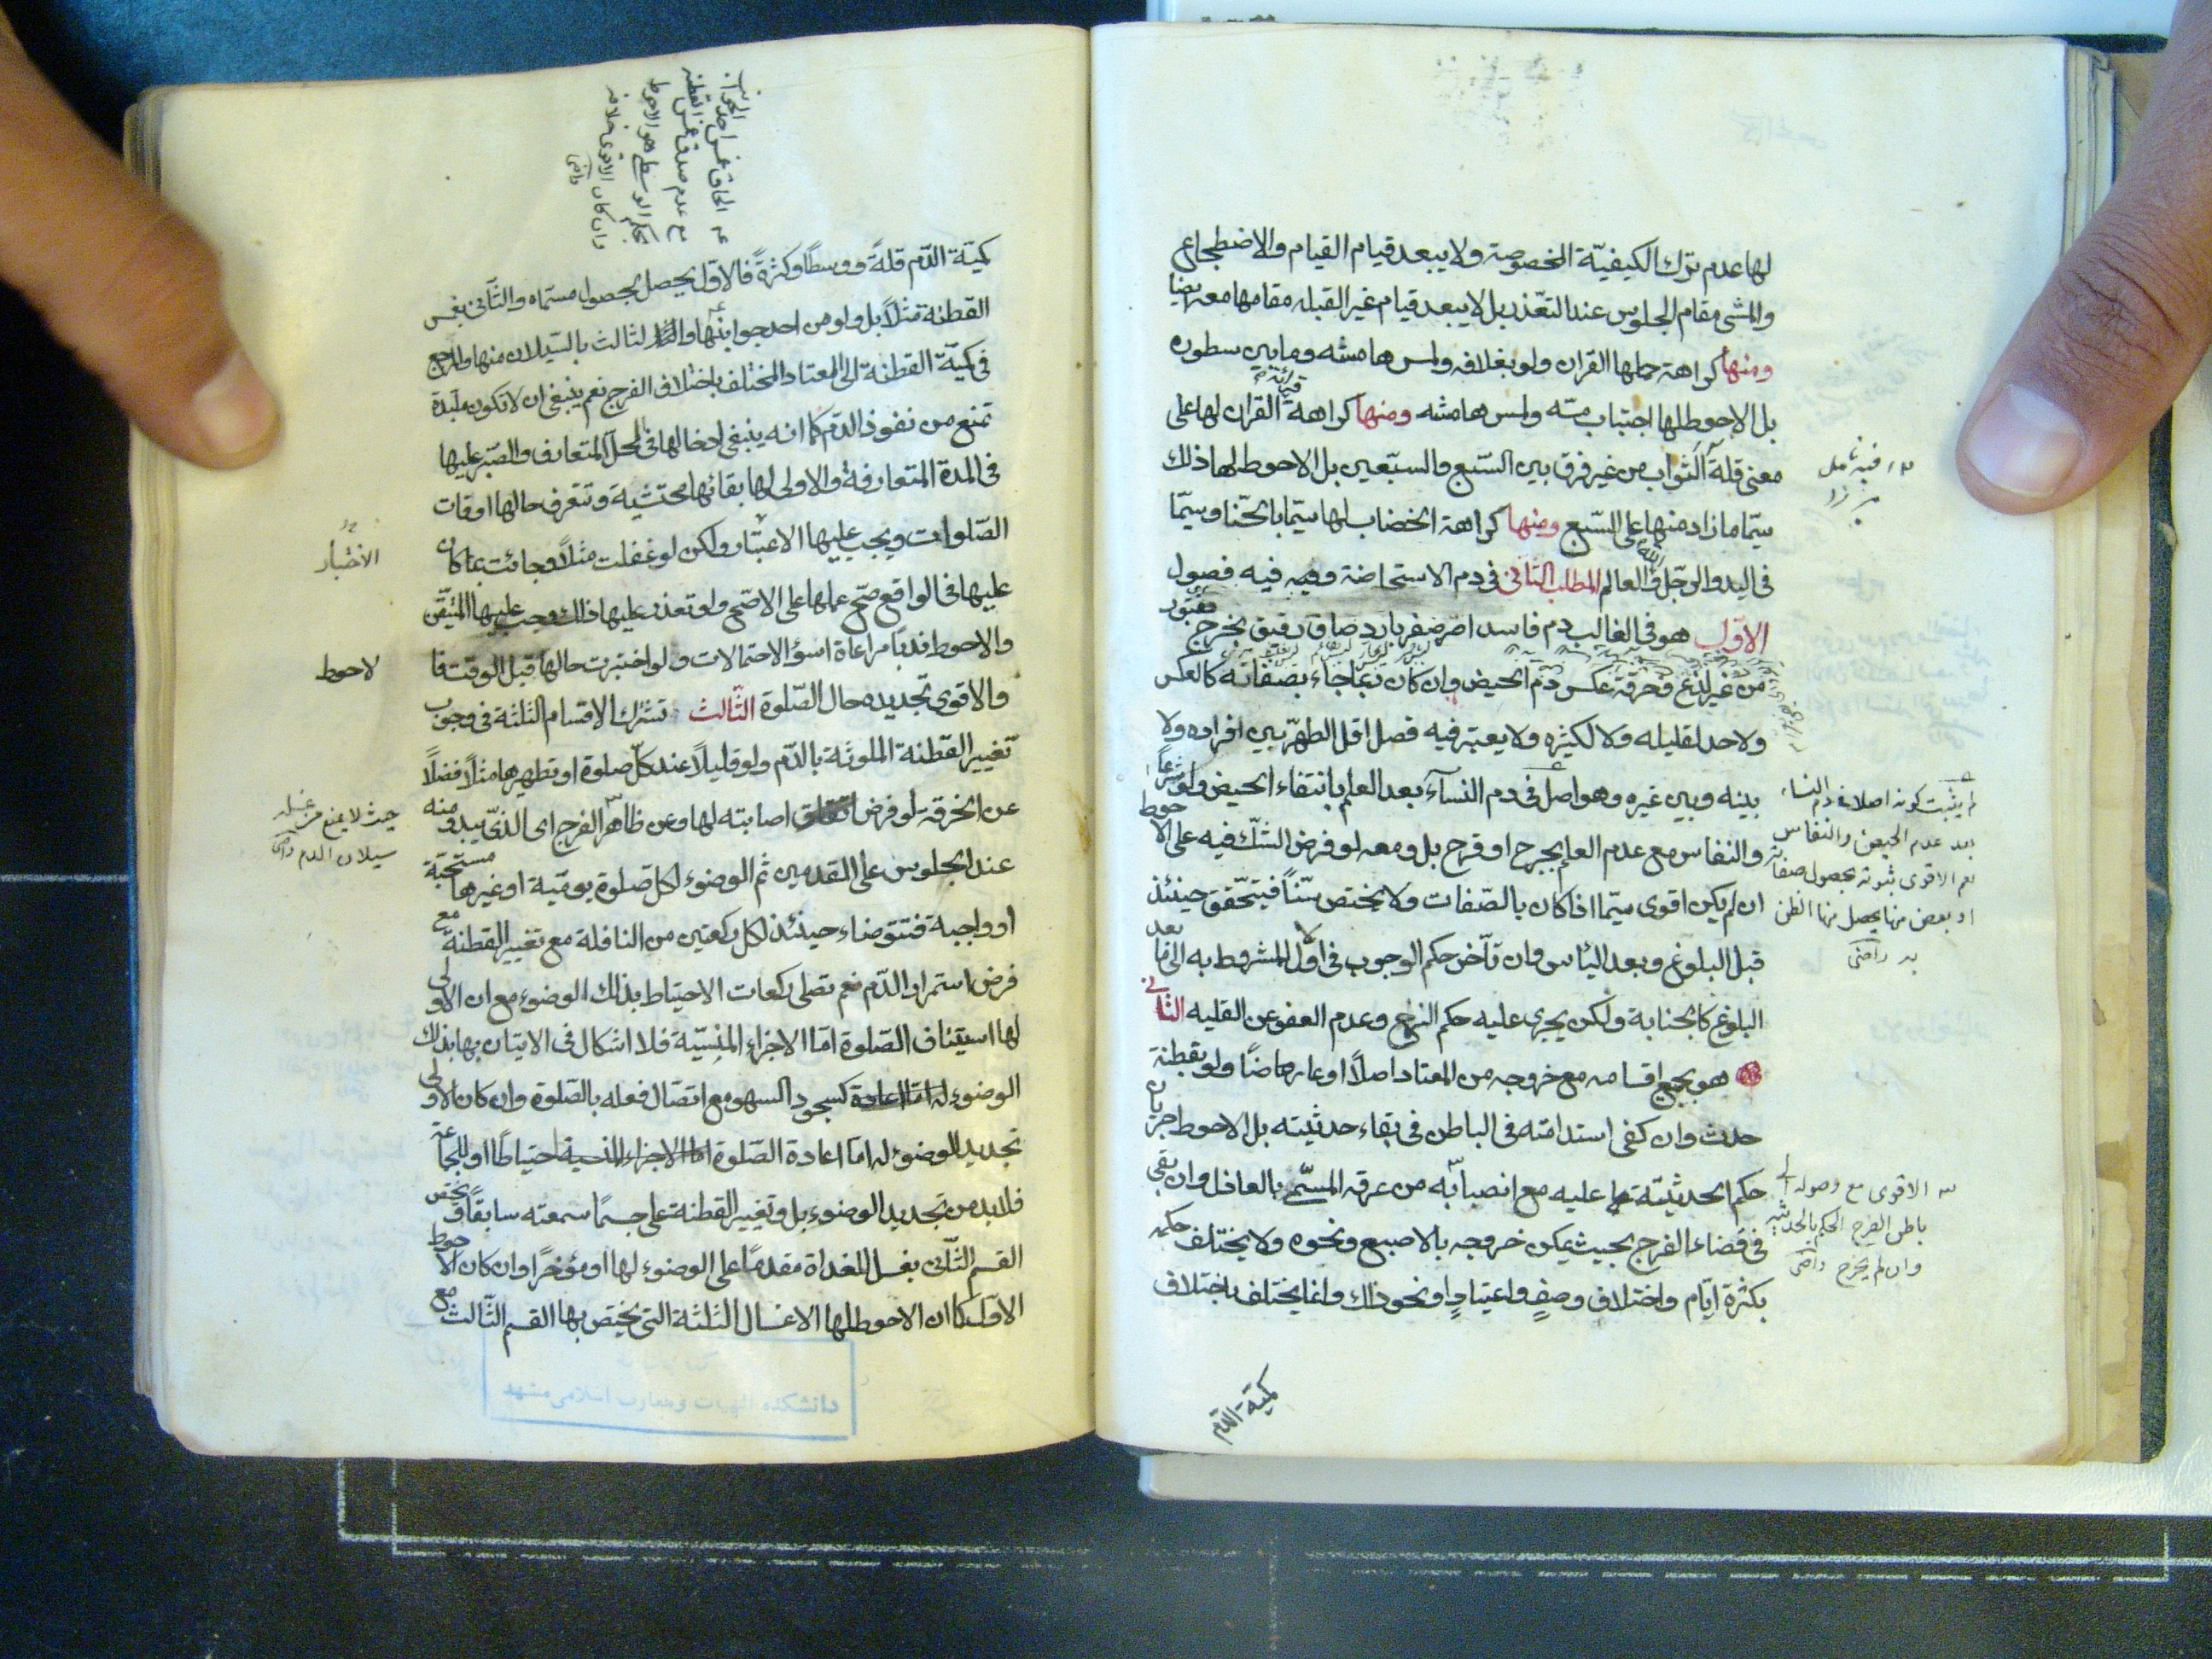 لها عدم ترك الكيفيّة المخصوصة ولا يبعد قيام القيام والاضطجاع
والمشى مقام الجلوس عند التعّذر بل لا يبعد قيام غير القبله مقامها معه ايضا
ومنها كراهة حملها القران ولو بغلافه ولمس هامشه وما بين سطوره
بل الاحوط لها اجتناب مسّه ولمس هامشه ومنها كراهة قرائة القران لها على
معنى قلة الثواب من غير فرق بين السّبع والسبّعين بل الاحوط لها ذلك
سيّما ما زاد منها على السّبع ومنها كراهة الخضاب لها سيّما بالحنّا وسيّما
فى اليد والرّجل والله العالم المطلب الثانى فى دم الاستحاضة وفيه فصول
الاوّل هو فى الغالب دم فاسد اصفر بارد صاف رقيق يخرج بفتور
من غير لذع وحرقة عكس دم الحيض وان كان ربّما جاء بصفاته كالعكس
ولا حد لقليله ولا لكثيره ولا يعتبر فيه فصل اقل الطهر بين افراده ولا
بينه وبين غيره وهو اصل فى دم النسآء بعد العلم بانتفاء الحيض ولو شرعاً
والنفاس مع عدم العلم بجرح او قرح بل ومعه لو فرض الشكّ فيه على الاحوط
ان لم يكن اقوى سيّما اذا كان بالصّفات ولا يختص سنّاً فيتحّقق حينئذ
قبل البلوغ وبعد اليأس وان تأخر حكم الوجوب فى الاوّل المشروط به الى ما بعد
البلوغ كالجنابة ولكن يجرى عليه حكم النزح وعدم العفو عن القليه الثانى
هو بجميع اقسامه مع خروجه من المعتاد اصلاً او عارضاً ولو بقطنة
حدث وان كفى استدامته فى الباطن فى بقاء حدثيته بل الاحوط اجرآء
حكم الحدثيّة عليه مع انصبابه من عرقه المسمّى بالعاذل وان بقى
فى فضاء الفرج بحيث يمكن خروجه بالاصبع ونحوه ولا يختلف حكمه
بكثرة ايّام واختلاف وصفٍ واعتيادٍ او نحو ذلك وانما يختلف باختلاف
كميّة الدّم
فيه تأمل
لم يثبت كونه اصلا فى دم النساء
بعد عدم الحيض والنفاس
نعم الاقوى ثبوته بحصول صفاته
او بعض منها يحصل منها الظن
به راضى
الاقوى مع وصوله الى
باطن الفرج الحكم بالحدثيه
وان لم يخرج راضى
كميّة الدّم قلةً ووسطاً وكثرةً فالاوّل يحصل بحصول مسمّاه والثّانى بغمس
القطنة مثلاً بل ولو من احد جوانبها والثالث بالسّيلان منها والمرجع
فى كميّة القطنة الى المعتاد المختلف باختلاف الفرج نعم ينبغى ان لا تكون ملبدة
تمنع من نفوذ الدّم كما انه ينبغى ادخالها فى المحلّ المتعارف والصّبر عليها
فى المدة المتعارفة والاولى لها بقائها محتشية وتتعرف حالها اوقات
الصّلوات ويجب عليها الاعتبار ولكن لو غفلت مثلاً وجائت بما كان
عليها فى الواقع صحّ عملها على الاصّح ولو تعذر عليها ذلك وجب عليها المتيّقن
والاحوط ندباً مراعاة اسؤ الاحتمالات ولو اختبرت حالها قبل الوقت فا
والاقوى تجديده حال الصّلوة الثّالث تشترك الاقسام الثلثة فى وجوب
تغيير القطنة الملوثة بالدّم ولو قليلاً عند كلّ صلوة او تطهيرها مثلاً فضلاً
عن الخرقة لو فرض اصابته لها وعن ظاهر الفرج اى الذى يبدو منه
عند الجلوس على القدمين ثم الوضوء لكل صلوة يوميّة او غيرها مستحّبة
او واجبة فتتوضاء حينئذ لكل ركعتين من النافلة مع تغيير القطنة مع
فرض استمرار الدّم نعم تصلى ركعات الاحتياط بذلك الوضوء مع ان الاولى
لها استيناف الصّلوة امّا الاجزاء المنسيّة فلا اشكال فى الاتيان بها بذلك
الوضوء كسجود السهو مع اتصّال فعله بالصّلوة وان كان الاولى
تجديد الوضوء له امّا اعادة الصّلوة احتياطاً او للجماعة
فلابد من تجديد الوضوء بل وتغيير القطنة على حسبما سمعته سابقاً ويختص
القسم الثّانى بغسل للغداة مقدماً على الوضوء لها او مؤخراً وان كان الاحوط
الاوّل كما ان الاحوط لها الاغسال الثلثة التى يختص بها القسم الثّالث مع
الحاق غمس احد الجوانب
مع عدم صدق غمس القطنة
بحكم الوسطى هو الاحوط
وان كان الاقوى خلافه
راضى
الاختبار
لاحوط
حيث لا يمنع من غسله
سيلان الدم راضى
دانشكده الهيات ومعارف اسلامى مشهد